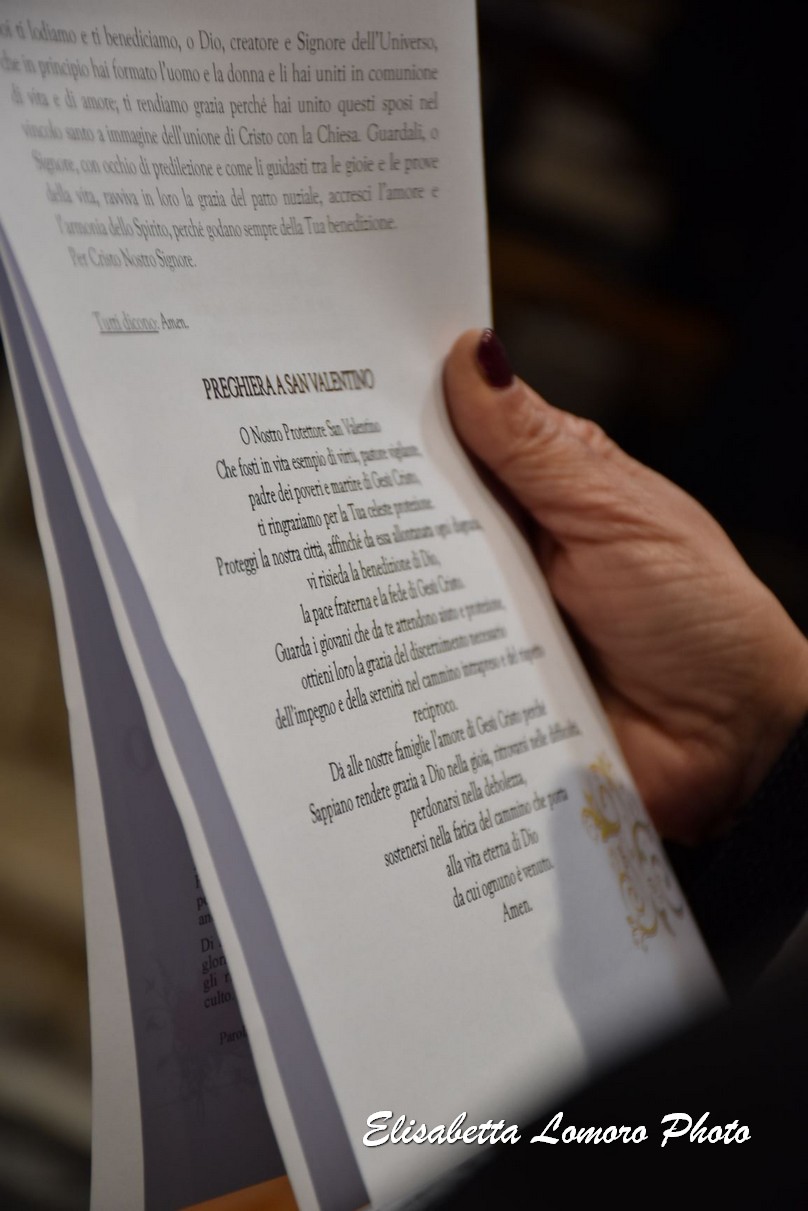 ti lodiamo e ti benediciamo, o Dio, creatore e Signore dell'Universo,
che in principio hai formato l'uomo e la donna e li hai uniti in comunione
di vita e di amore; ti rendiamo grazia perché hai unito questi sposi nel
vincolo santo a immagine dell'unione di Cristo con la Chiesa. Guardali, o
Signore, con occhio di predilezione e come li guidasti tra le gioie e le prove
della vita, ravviva in loro la grazia del patto nuziale, accresci l'amore e
l'armonia dello Spirito, perché godano sempre della Tua benedizione.
Per Cristo Nostro Signore.
Tutti dicono: Amen.
PREGHIERA A SAN VALENTINO
O Nostro Protettore San Valentino
Che fosti in vita esempio di virtù, pastore vigilante,
padre dei poveri e martire di Gesù Cristo,
ti ringraziamo per la Tua celeste protezione.
Proteggi la nostra città, affinché da essa allontanata ogni disgrazia,
vi risieda la benedizione di Dio,
la pace fraterna e la fede di Gesù Cristo.
Guarda i giovani che da te attendono aiuto e protezione,
ottieni loro la grazia del discernimento necessario
dell'impegno e della serenità nel cammino intrapreso e del rispetto
reciproco.
Dà alle nostre famiglie l'amore di Gesù Cristo perché
Sappiano rendere grazia a Dio nella gioia, ritrovarsi nelle difficoltà,
perdonarsi nella debolezza,
sostenersi nella fatica del cammino che porta
alla vita eterna di Dio
da cui ognuno è venuto.
Amen.
Di
glor
gli
culto.
Parol
Elisabetta Lomoro Photo